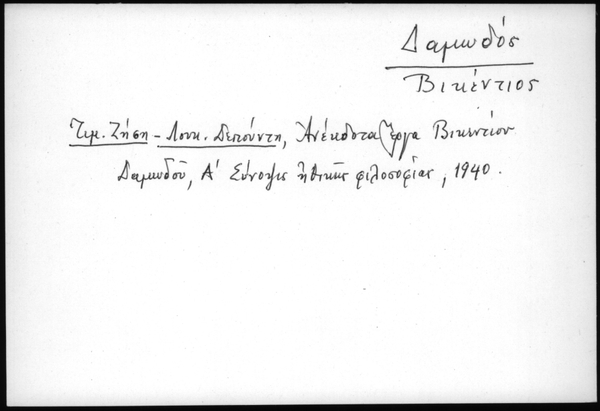 Δαμωδός
Βικέντιος
Τιμ. Ζήση - Λουκ. Δεπούντη, Ἀνέκδοτα ἔργα Βικεντίου
Δαμωδοῦ, Α' Σύνοψις ἠθικῆς φιλοσοφίας, 1940.